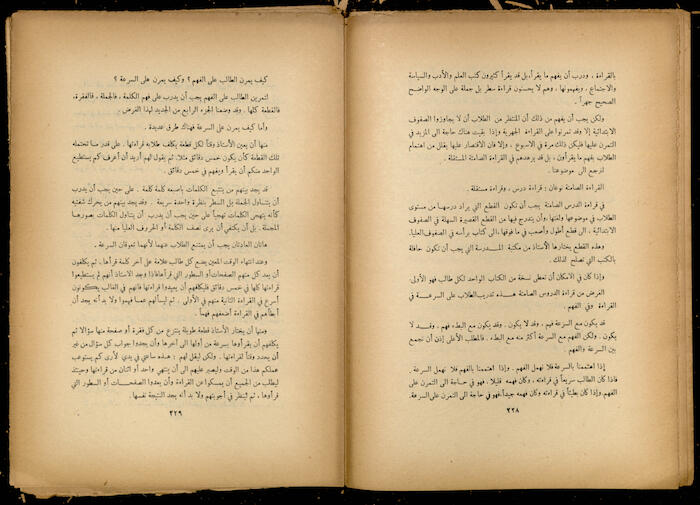 بالقراءة ، ودرب أن يفهم ما يقرأ، بل قد يقرأ كثيرون كتب العلم والأدب والسياسة
والاجتماع ، ويفهمونها ، وهم لا يحسنون قراءة سطر بل جملة على الوجه الواضح
الصحيح جهراً .
ولكن يجب أن يفهم من ذلك أن المنتظر من الطلاب أن لا يجاوزوا الصفوف
الابتدائية إلا وقد تمرنوا على القراءة الجهرية وإذا بقيت هناك حاجة الى المزيد في
التمرن عليها فليكن ذلك مرة في الاسبوع ، وإلا فان الاقتصار عليها يقلل من اهتمام
الطلاب بفهم ما يقرأون ، بل قد يزهدهم في القراءة الصامتة المستقلة .
لنرجع الى موضوعنا .
القراءة الصامتة نوعان : قراءة درس ، وقراءة مستقلة .
في قراءة الدرس الصامتة يجب أن تكون القطع التي يراد درسها من مستوى
الطلاب في موضوعها ولغتها، وأن يتدرج فيها من القطع القصيرة السهلة في الصفوف
الابتدائية ، الى قطع أطول وأصعب في ما فوقها، الى كتاب برأسه في الصفوف العليا .
وهذه القطع يختارها الأستاذ من مكتبة المدرسة التي يجب أن تكون حافلة
بالكتب التي تصلح لذلك .
وإذا كان في الامكان أن تعطى نسخة من الكتاب الواحد لكل طالب فهو الأولى.
الغرض من قراءة الدروس الصامتة هذه تدريب الطلاب على السرعة في
القراءة وفي الفهم .
قد يكون مع السرعة فهم ، وقد لا يكون . وقد يكون مع البطء فهم ، وقد لا
يكون . ولكن الفهم مع السرعة أكثر منه مع البطء . فالمطلب الأعلى إذن أن نجمع
بين السرعة والفهم .
إذا اهتممنا بالسرعة فلا نهمل الفهم . وإذا اهتممنا بالفهم فلا نهمل السرعة .
فاذا كان الطالب سريعاً في قراءته ، وكان فهمه قليلا ، فهو في حاجة الى التمرن على
الفهم، وإذا كان بطيئاً في قراءته وكان فهمه جيداً، فهو في حاجة الى التمرن على السرعة.
٢٢٨
كيف يمرن الطالب على الفهم ؟ وكيف يمرن على السرعة ؟
لتمرين الطالب على الفهم يجب أن يدرب على فهم الكلمة ، فالجملة ، فالفقرة،
فالقطعة كلها . وقد وضعنا الجزء الرابع من الجديد لهذا الغرض .
وأما كيف يمرن على السرعة فهناك طرق عديدة .
منها أن يعين الأستاذ وقتاً لكل قطعة يكلف طلابه قراءتها ، على قدر ما تحتمله
تلك القطعة كأن يكون خمس دقائق مثلا، ثم يقول لهم أريد أن أعرف كم يستطيع
الواحد منكم أن يقرأ ويفهم في خمس دقائق .
قد يجد بينهم من يتتبع الكلمات باصبعه كلمة كلمة . على حين يجب أن يدرب
أن يتناول الجملة بل السطر بنظرة واحدة سريعة . وقد يجد بينهم من يحرك شفتيه
كأنه يتهجى الكلمات تهجياً على حين يجب أن يدرب أن يتناول الكلمات بصورها
المجملة . بل أن يكتفي أن يرى نصف الكلمة أو الحروف العليا منها .
هاتان العادتان يجب أن يمتنع الطلاب عنهما لأنهما تعوقان السرعة .
وعند انتهاء الوقت المعين يضع كل طالب علامة على آخر كلمة قرأها ، ثم يكلفون
أن يعد كل منهم الصفحات أو السطور التي قرأها فاذا وجد الاستاذ أنهم لم يستطيعوا
قراءتها كلها في خمس دقائق فليكلفهم أن يعيدوا قراءتها فانهم في الغالب يكونون
أسرع في القراءة الثانية منهم في الأولى ، ثم ليسألهم عما فهموا ولا بد أنه يجد أن
أبطأهم في القراءة أضعفهم فهماً .
ومنها أن يختار الأستاذ قطعة طويلة ينتزع من كل فقرة أو صفحة منها سؤالا ثم
يكلفهم أن يقرأوها بسرعة من أولها الى آخرها وأن يجدوا جواب كل سؤال من غير
أن يحدد وقتاً لقراءتها . ولكن ليقل لهم : هذه ساعتي في يدي لأرى كم يستوعب
عملكم هذا من الوقت وليصبر عليهم الى أن ينتهي واحد أو اثنان من قراءتها وحينئذ
ليطلب من الجميع أن يمسكوا عن القراءة وأن يعدوا الصفحات أو السطور التي
قرأوها ، ثم لينظر في أجوبتهم ولا بد أنه يجد النتيجة نفسها .
٢٢٩